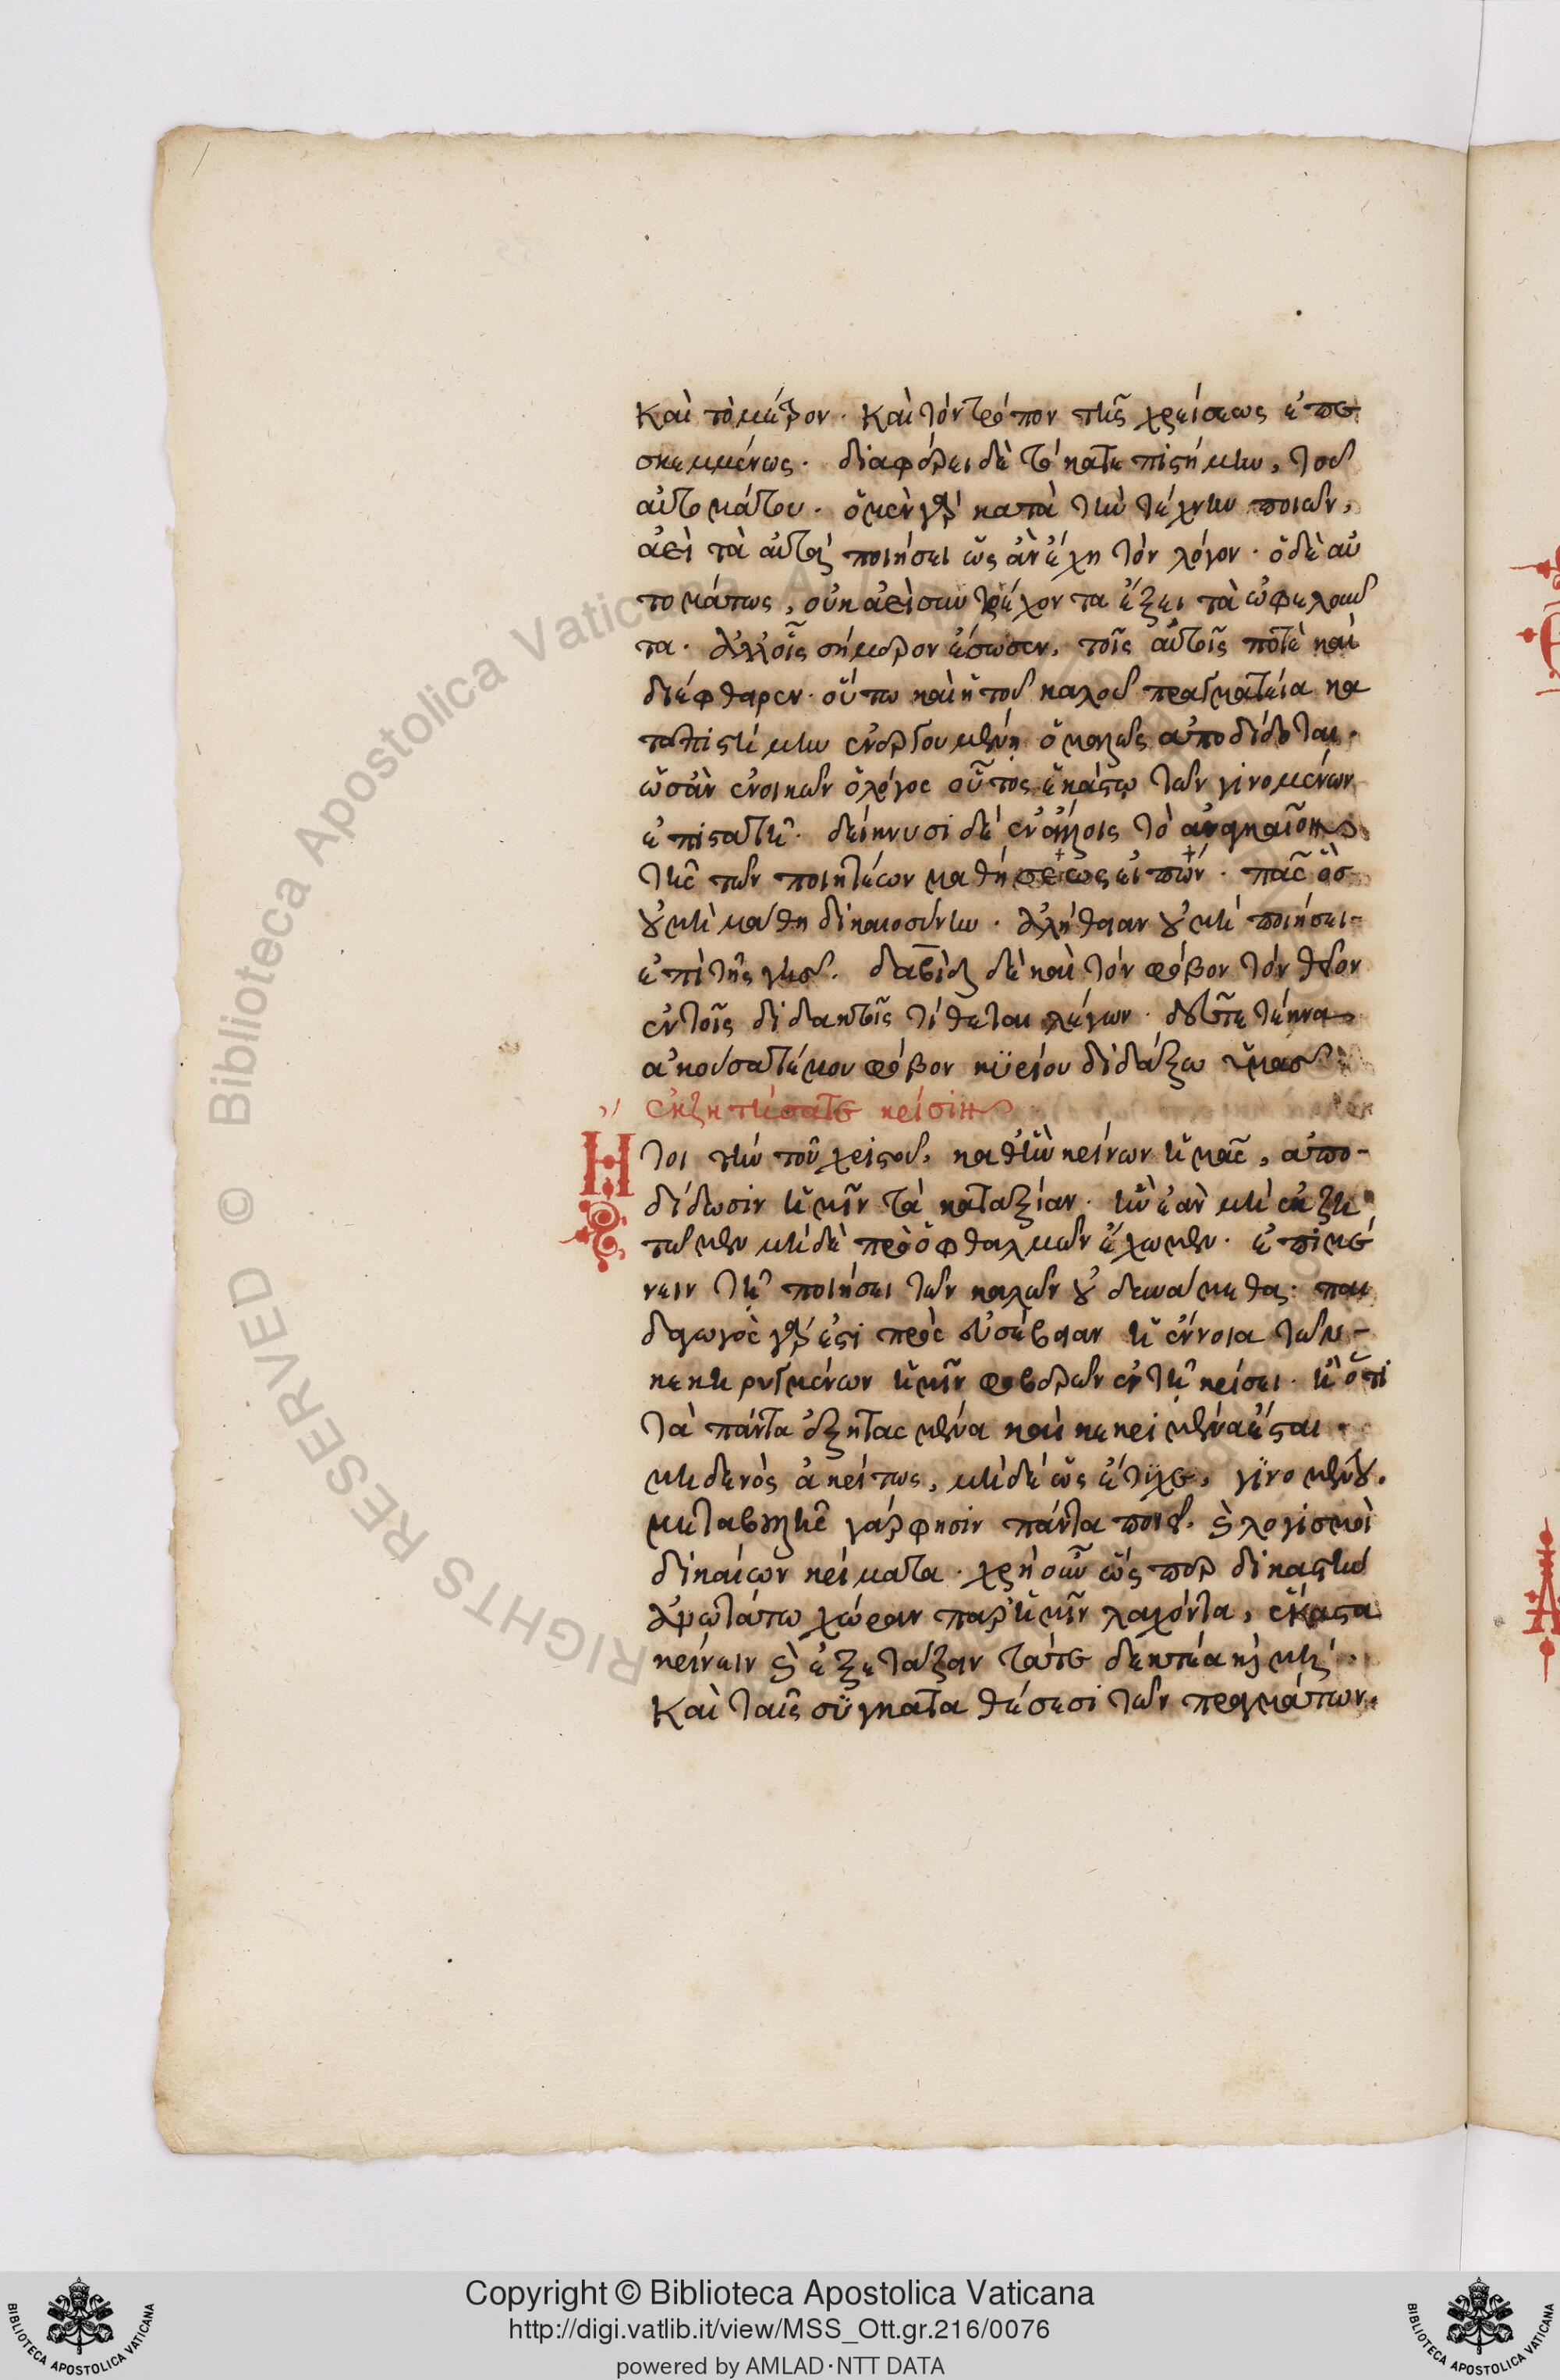 καὶ τὸ μέτρον· καὶ τὸν τρόπον τῆς χρήσεως ἐπε
σκεμμένως· διαφέρει δὲ τὸ κατ' ἐπιστήμην, τοῦ
αὐτομάτου· ὁ μὲν γὰρ κατὰ τὴν τέχνην ποιῶν,
ἀεὶ τὰ αὐτὰ ποιήσει ὡς ἂν ἔχη τὸν λόγον· ὁ δὲ αὐ
τομάτως, οὐκ ἀεὶ συντρέχοντα ἕξει τὰ ὠφελοῦν
τα· ἀλλ' οἷς σήμερον ἔσωσεν, τοῖς αὐτοῖς ποτὲ καὶ
διέφθαρεν· οὕτω καὶ ἡ τοῦ καλοῦ πραγματεία κα
τ' ἐπιστήμην ἐνεργουμένη ὁμαλῶς ἀποδίδοται·
ὡς ἂν ἐνοικῶν ὁ λόγος οὗτος ἑκάστω τῶν γινομένων
ἐπιστατῆ· δείκνυσι δὲ ἐν ἄλλοις τὸ ἀναγκαῖον
τῆς τῶν ποιητέων μαθήσεως εἰπών· πᾶς ὃς
οὐ μὴ μάθη δικαιοσύνην· ἀλήθειαν οὐ μὴ ποιήσει
ἐπὶ τῆς γῆς· δαβὶδ δὲ καὶ τὸν φόβον τὸν θεῖον
ἐν τοῖς διδακτοῖς τίθεται λέγων· δεῦτε τέκνα
ἀκούσατέ μου φόβον κυρίου διδάξω ὑμᾶς
ἐκζητήσατε κρίσιν
Ἤτοι τὴν τοῦ χριστοῦ, καθ' ἣν κρίνων ἡμᾶς, ἀπο-
δίδωσιν ἡμῖν τὰ κατ' ἀξίαν· ἣν ἐὰν μὴ ἐκζη
τῶμεν μὴ δὲ πρὸ ὀφθαλμῶν ἔχωμεν· ἐπιμέ
νειν τῆ ποιήσει τῶν καλῶν οὐ δυνάμεθα· παι
δαγωγὸς γάρ ἐστι πρὸς εὐσέβειαν ἡ ἔννοια τῶν
κεκηρυγμένων ἡμῖν φοβερῶν ἐν τῆ κρίσει· ἢ ὅτι
τὰ πάντα ἐξητασμένα καὶ κεκριμένα ἔσται·
μηδενὸς ἀκρίτως, μὴ δὲ ὡς ἔτυχε, γινομένου·
μετὰ βουλῆς γάρ φησιν πάντα ποίει· καὶ λογισμοὶ
δικαίων κρίματα· χρὴ οὖν ὥσπερ δικαστὴν
ἀνωτάτω χώραν παρ' ἡμῖν λαχόντα, ἕκαστα
κρίνειν καὶ ἐξετάζειν τά τε δεκτέα καὶ μή·
Καὶ ταῖς συγκαταθέσεσι τῶν πραγμάτων·
Copyright © Biblioteca Apostolica Vaticana
http://digi.vatlib.it/view/MSS_Ott.gr.216/0076
powered by AMLAD·NTT DATA